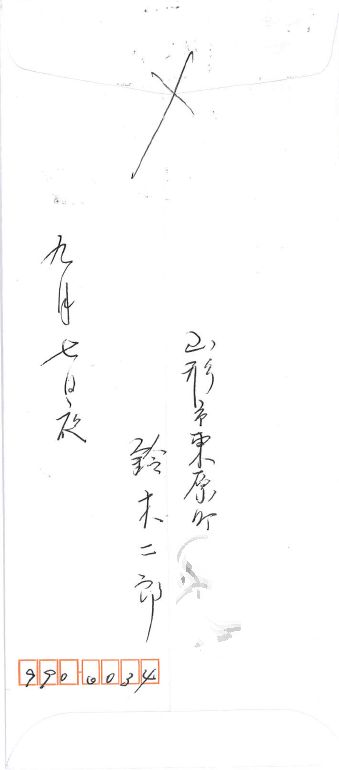 山形市東原町
鈴木二郎
九月七日夜
990-0034